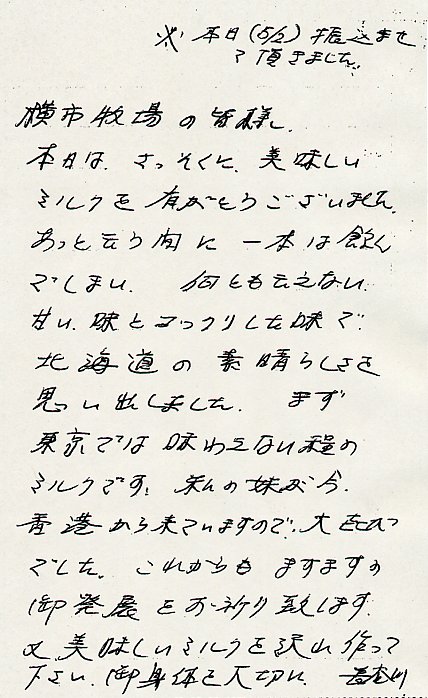 ※本日(5/2)振込ませ
て頂きました。
横市牧場の皆様。
本日は、さっそくに、美味しい
ミルクを有がとうございました。
あっと云う間に一本は飲ん
でしまい、何とも云えない
甘い、味とコックリした味で
北海道の素晴らしさを
思い出しました。まず
東京では味わえない程の
ミルクです。私の妹が今、
香港から来ていますので、大喜び
でした。これからもますますの
御発展をお祈り致します。
又、美味しいミルクを沢山作って
下さい。御身体を大切に。